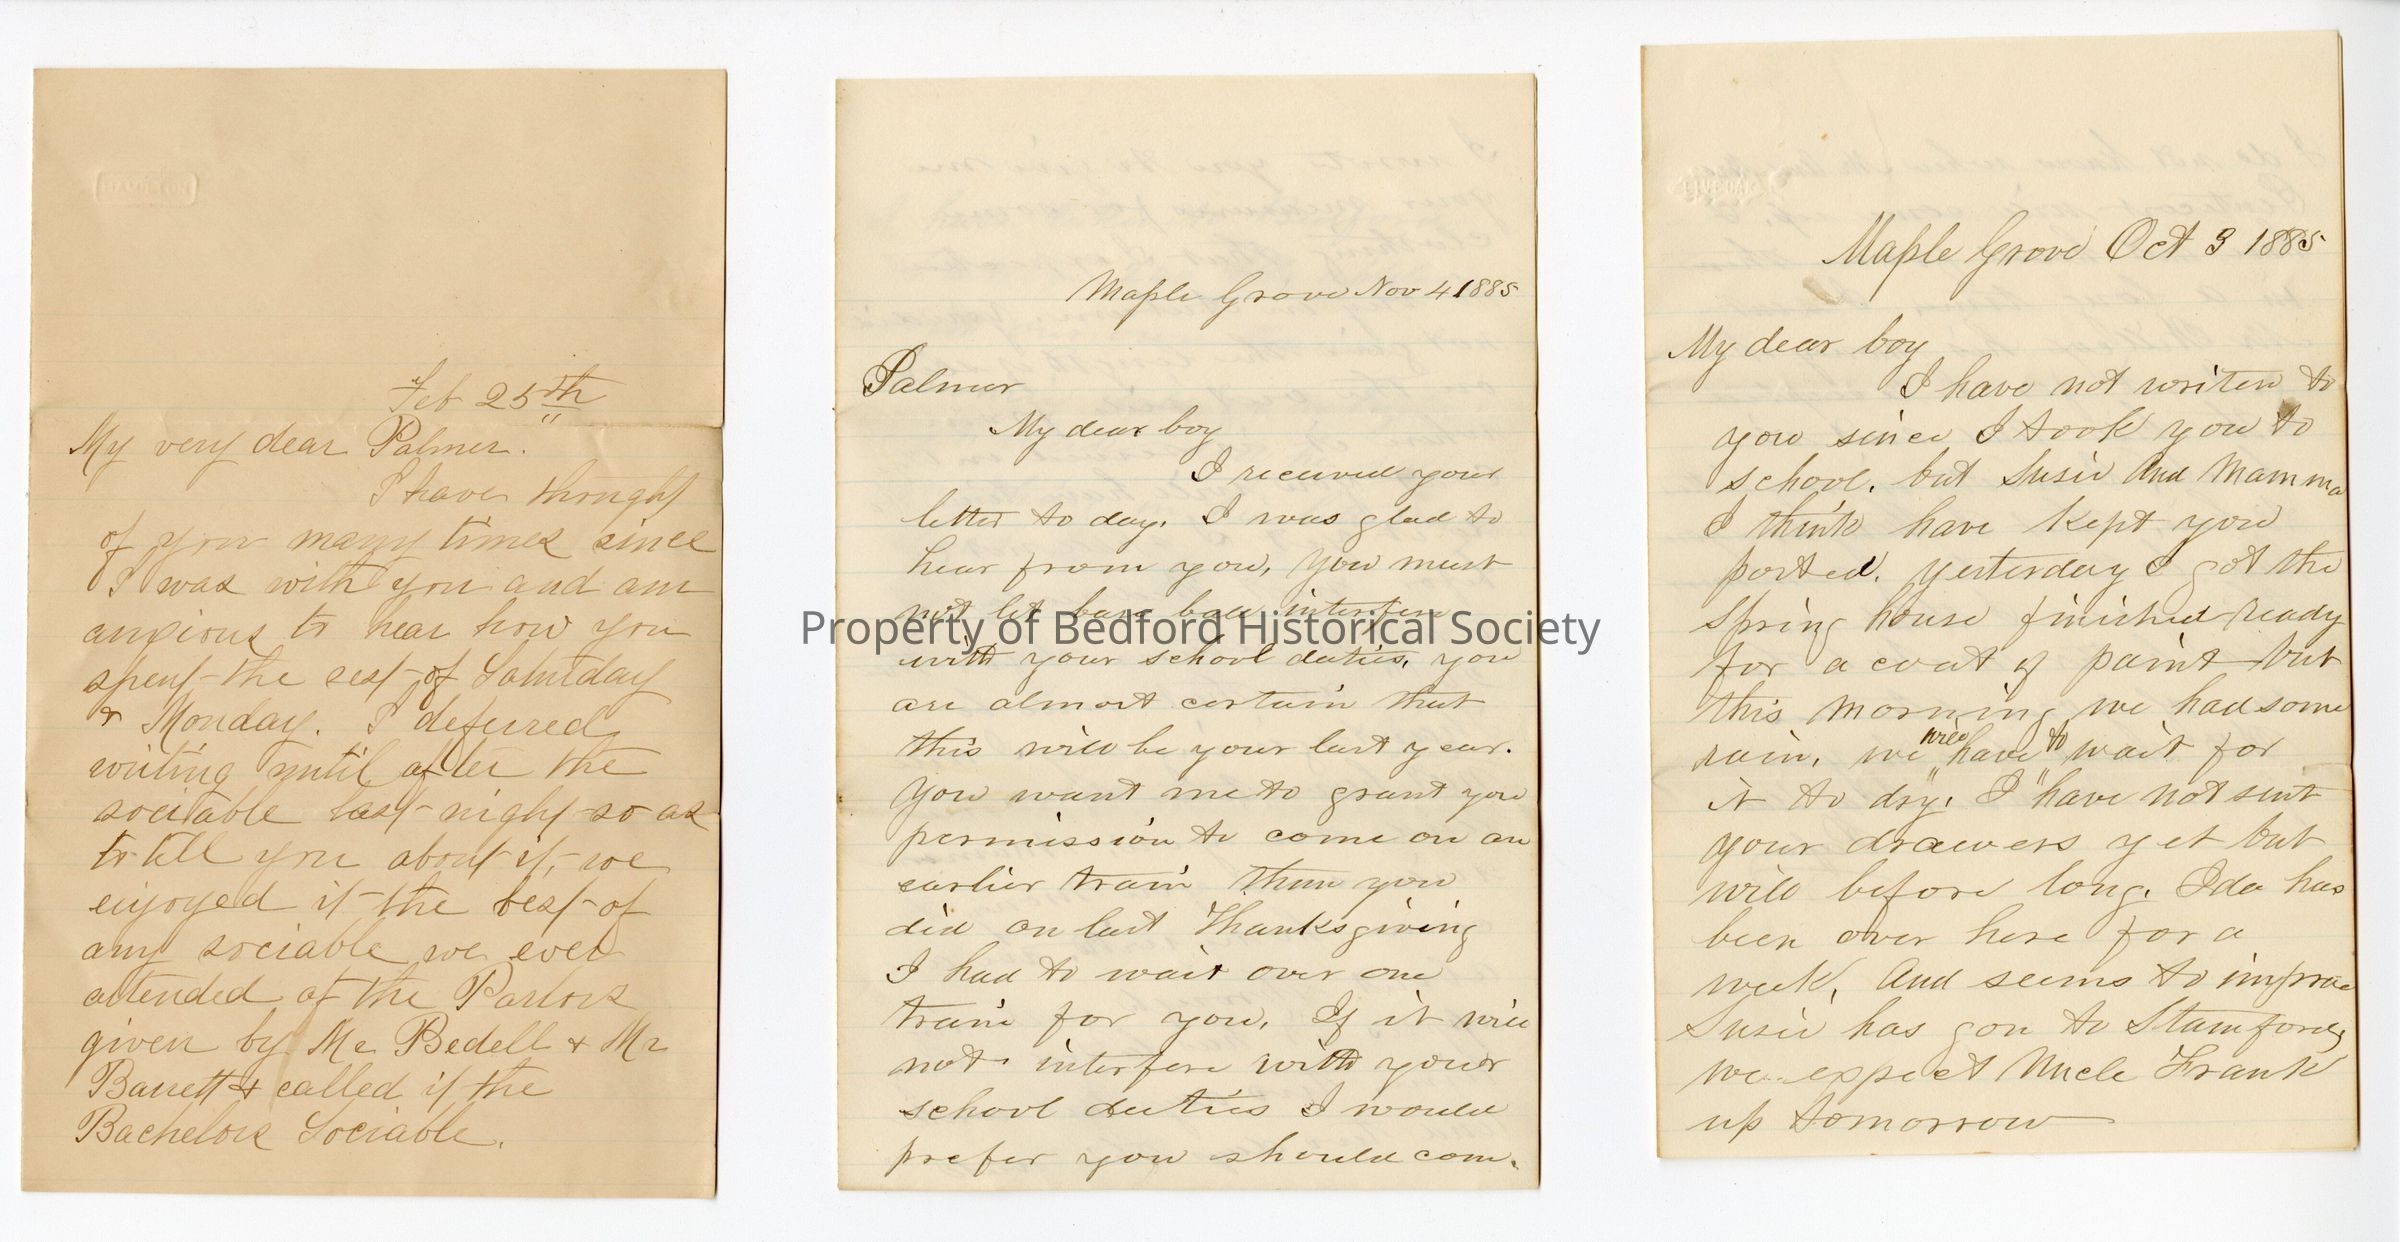 HAMILTON
Feb 25th
My very dear Palmer.
I have thought
of you many times since
I was with you and am
anxious to hear how you
spent the rest of Saturday
& Monday. I deferred
writing until after the
sociable last night so as
to tell you about it, we
enjoyed it the best of
any sociable we ever
attended at the Parlors
given by Mr Bedell & Mr
Barrett & called it the
Bachelors Sociable.
Maple Grove Nov 4 1885
Palmer
My dear boy
I received your
letter to day. I was glad to
hear from you, you must
not let base ball interfere
with your school duties, you
are almost certain that
this will be your last year.
You want me to grant you
permission to come on an
earlier train than you
did on last Thanksgiving
I had to wait over one
train for you. If it will
not interfere with your
school duties I would
prefer you should com.
LIVE OAK
Maple Grove Oct 3 1885
My dear boy
I have not writen to
you since I took you to
school. but Susie and Mamma
I think have kept you
posted. yesterday I got the
Spring house finished ready
for a coat of paint but
this morning we had some
rain, we will have to wait for
it to dry. I have not sent
your drawers yet but
will before long. Ida has
been over here for a
week, and seems to improve
Susie has gon to Stamford,
we expect Uncle Frank
up tomorrow
Property of Bedford Historical Society